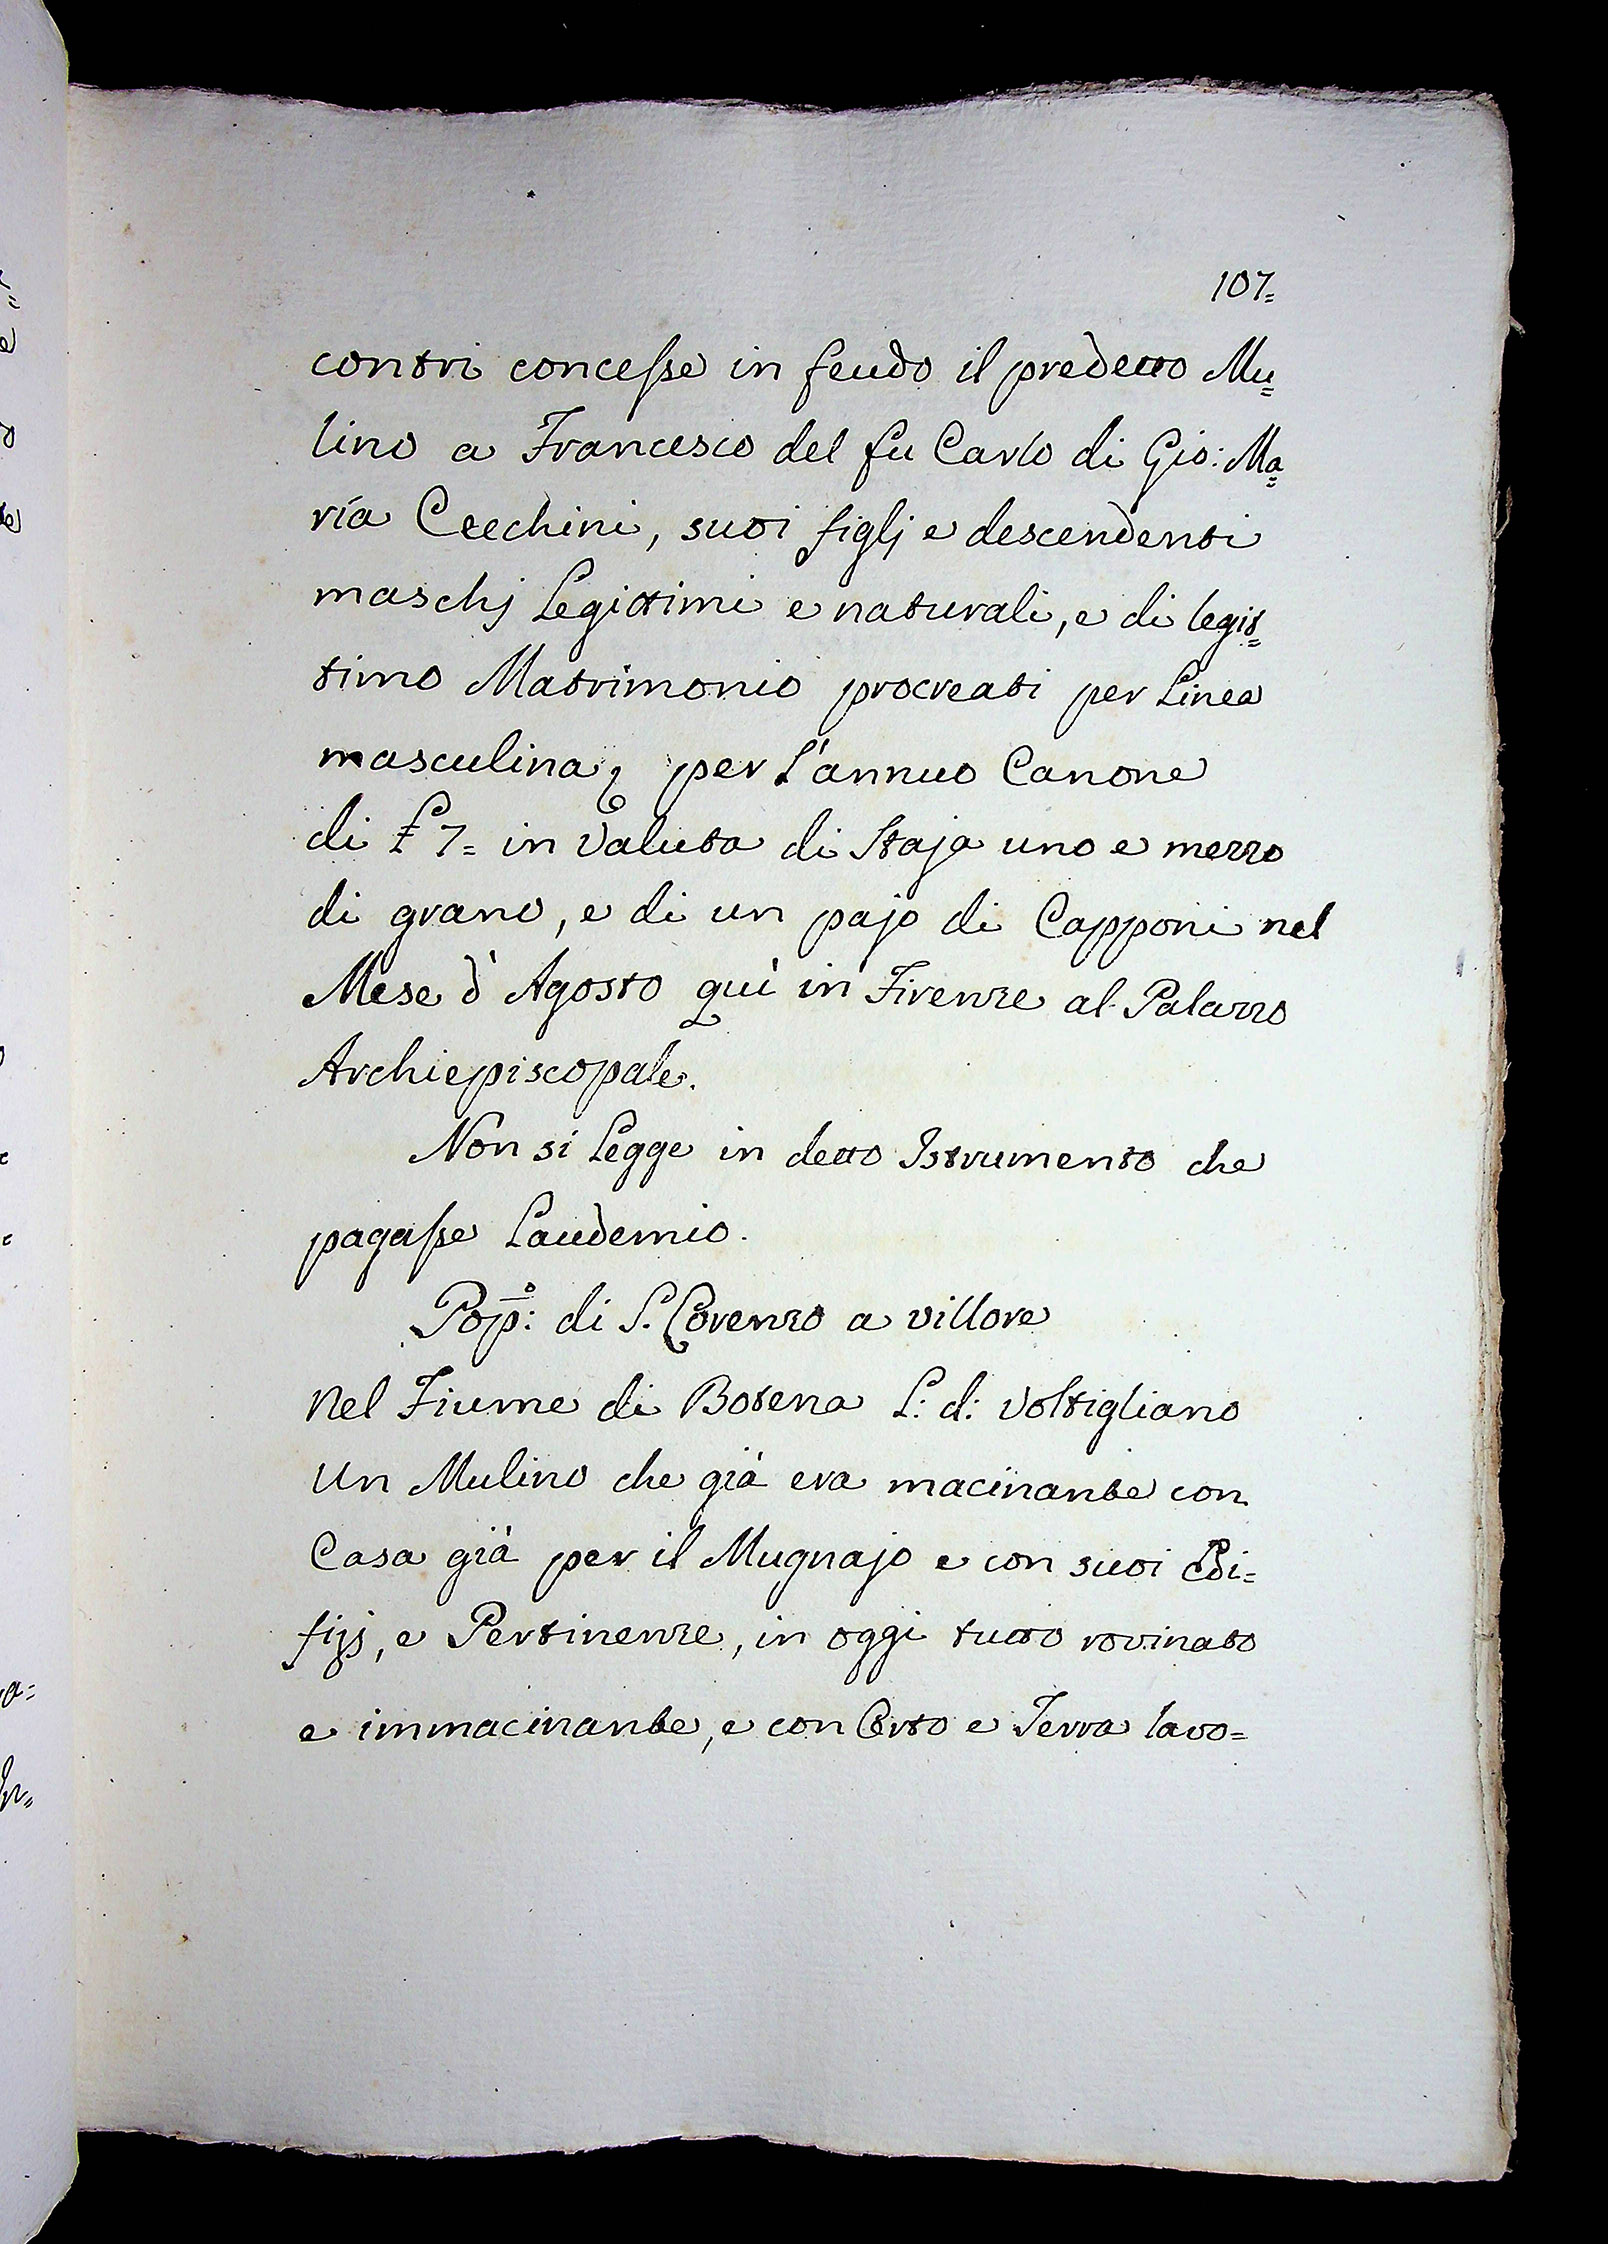 107=
contri concesse in feudo il predetto Mu=
lino a Francesco del fu Carlo di Gio: Ma=
ria Cecchini, suoi figlj e descendenti
maschj Legittimi e naturali, e di legit=
timo Matrimonio procreati per Linea
masculina, per L'annuo Canone
di £ 7= in Valuta di Staja uno e mezzo
di grano, e di un pajo di Capponi nel
Mese d'Agosto quì in Firenze al Palazzo
Archiepiscopale.
Non si Legge in detto Istrumento che
pagasse Laudemio.
Pop:º di S. Lorenzo a villore
Nel Fiume di Botena L: d: Voltigliano
Un Mulino che già era macinante con
Casa già per il Mugnajo e con suoi Edi=
fizj, e Pertinenze, in oggi tutto rovinato
e immacinante, e con Orto e Terra lavo=